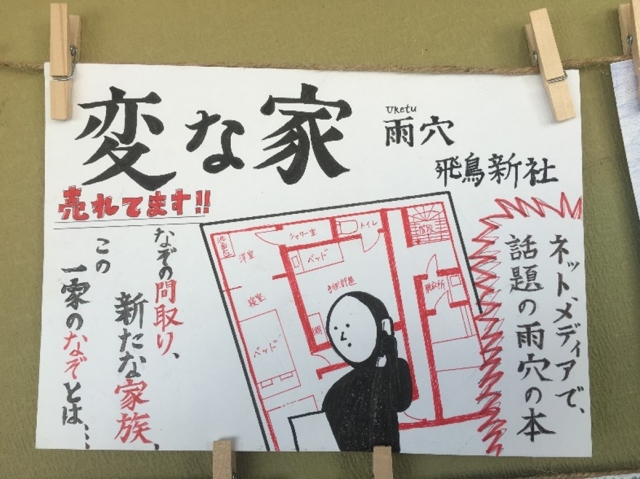 変な家
Uketu
雨穴
飛鳥新社
売れてます!!
ネット、メディアで、
話題の雨穴の本
なぞの間取り、
新たな家族、
この
一家のなぞとは、…
洋室
シャワー室
トイレ
ベッド
子供部屋
寝室
ベッド